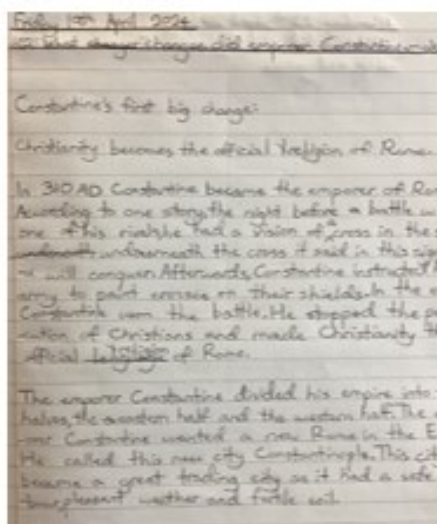 Friday 19th April 2024
What changes did emperor Constantine
Constantine's first big change:
Christianity becomes the official religion of Rome.
In 310 AD Constantine became the emperor of Ro
According to one story, the night before a battle w
one of his rivals, he had a vision of a cross in the s
underneath the cross it said in this sig
will conquer. Afterwards, Constantine instructed
army to paint crosses on their shields. In the e
Constantine won the battle. He stopped the pe
cution of Christians and made Christianity th
official of Rome.
The emperor Constantine divided his empire into
halves, the eastern half and the western half. The
Constantine wanted a new Rome in the E
He called this new city Constantinople. This cit
became a great trading city as it had a safe
pleasant weather and fertile soil.